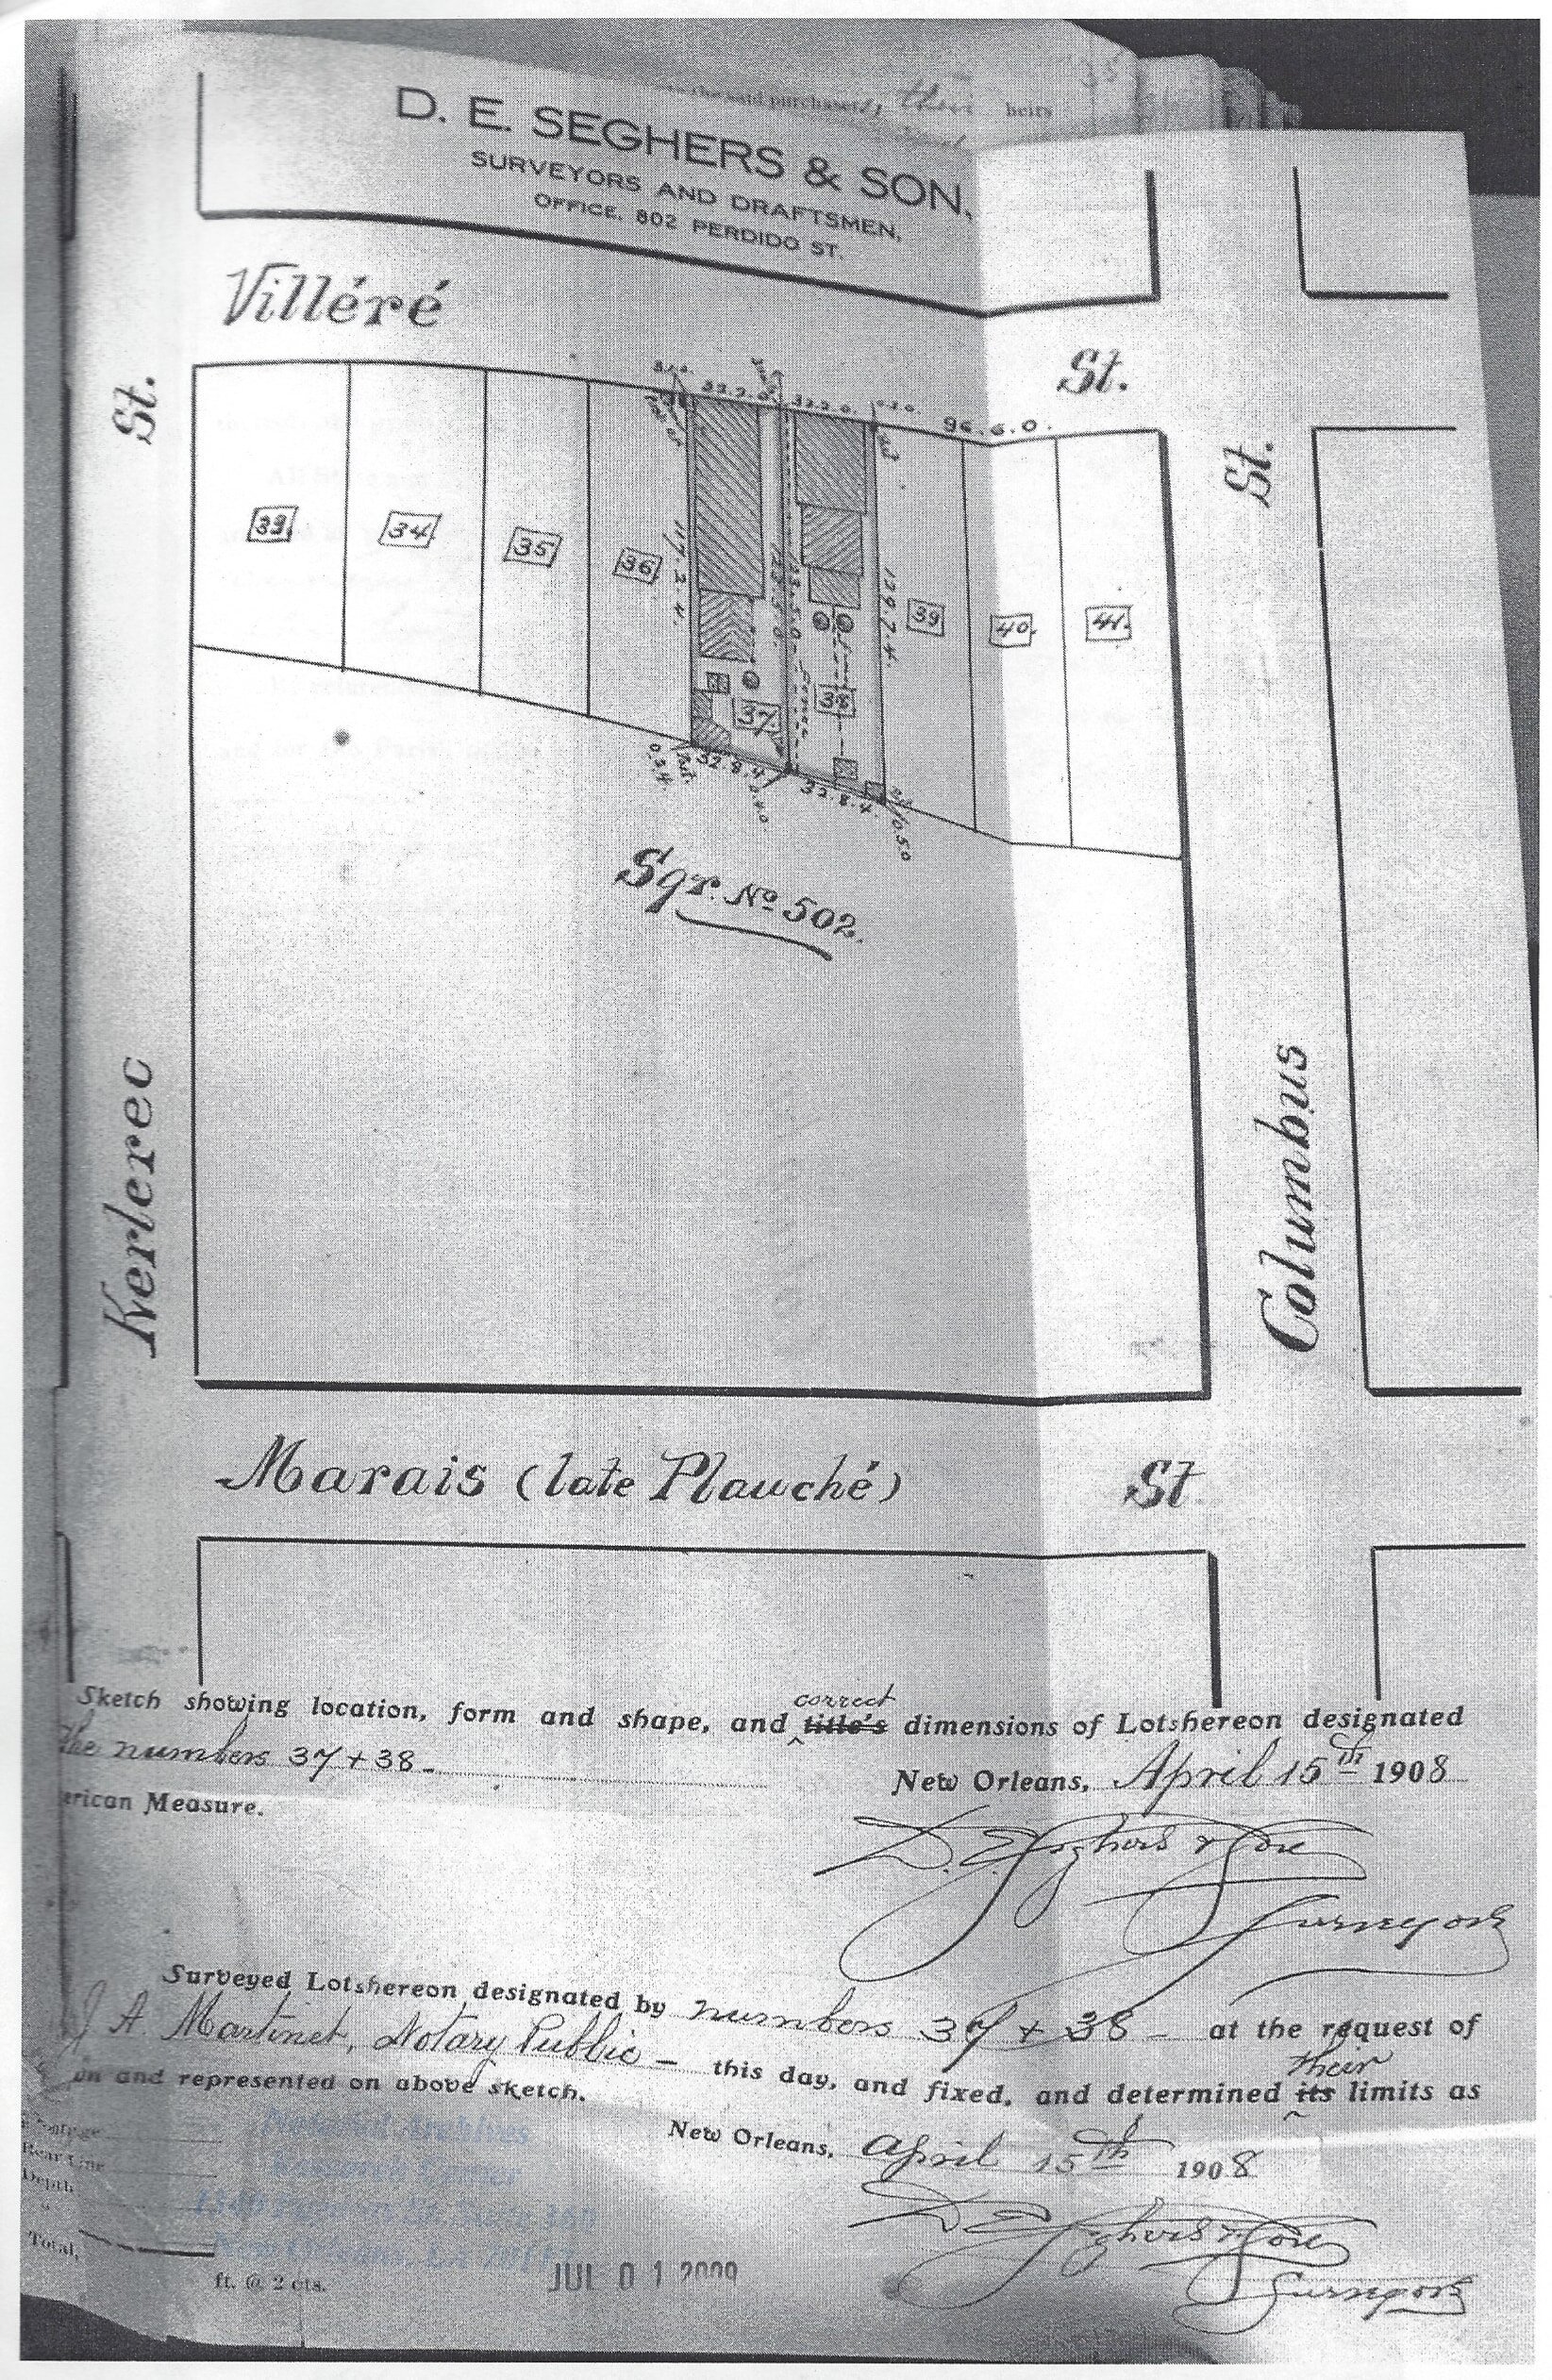 the said purchaser, their heirs
D. E. SEGHERS & SON,
SURVEYORS AND DRAFTSMEN,
OFFICE, 802 PERDIDO ST.
Villéré St.
St.
St.
96.6.0.
33.
34.
35
36
37.
38
39
40.
41.
117.3.4.
129.7.4.
32.8.4
32.8.4.
Sqr. No 502.
Kerlerec
Columbus
Marais (late Plauché) St
correct
Sketch showing location, form and shape, and title's dimensions of Lotshereon designated
the numbers 37 + 38.
New Orleans, April 15th 1908
erican Measure.
D. E. Seghers & Son
Surveyors
Surveyed Lotshereon designated by numbers 37 + 38 - at the request of
J A Martinet, Notary Public - this day, and fixed, and determined its limits as
their
on and represented on above sketch.
New Orleans, April 15th 1908
D E Seghers & Son
Surveyors
Notarial Archives
Research Center
New Orleans, LA 70112
Rear Line
Depth
"
Total,
ft. @ 2 cts.
JUL 01 2009